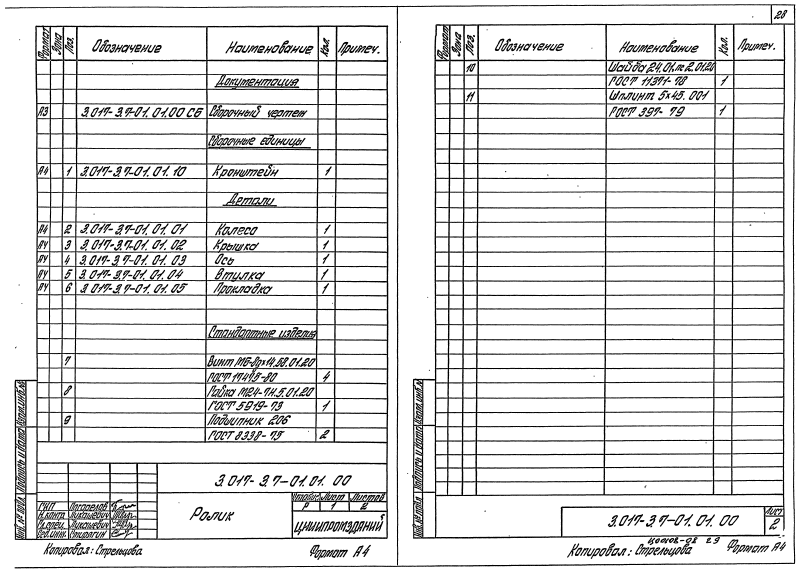 28
Формат Зона Поз. Обозначение Наименование Кол. Примеч.
Документация
А3 3.017-3.7-01.01.00 СБ Сборочный чертеж
Сборочные единицы
А4 1 3.017-3.7-01.01.10 Кронштейн 1
Детали
А4 2 3.017-3.7-01.01.01 Колесо 1
А4 3 3.017-3.7-01.01.02 Крышка 1
А4 4 3.017-3.7-01.01.03 Ось 1
А4 5 3.017-3.7-01.01.04 Втулка 1
А4 6 3.017-3.7-01.01.05 Прокладка 1
Стандартные изделия
7 Винт М6-8gх14.58.01.20
ГОСТ 17475-80 4
8 Гайка М24-7Н.5.01.20
ГОСТ 5919-73 1
9 Подшипник 206
ГОСТ 8338-75 2
3.017-3.7-01.01.00
Ролик
Стадия Лист Листов
Р 1 2
ЦНИИПРОМЗДАНИЙ
ГИП
Н.контр. Лукашевич
Гл.спец. Лукашевич
Вед.инж.
Инв.№ подл. Подпись и дата Взам.инв.№
Копировал: Стрельцова Формат А4
Формат Зона Поз. Обозначение Наименование Кол. Примеч.
10 Шайба 24.01.
ГОСТ 11371-78 1
11 Шплинт 5х45.001
ГОСТ 397-79 1
Инв.№ подл. Подпись и дата Взам.инв.№
3.017-3.7-01.01.00
Лист
2
29
Копировал: Стрельцова Формат А4